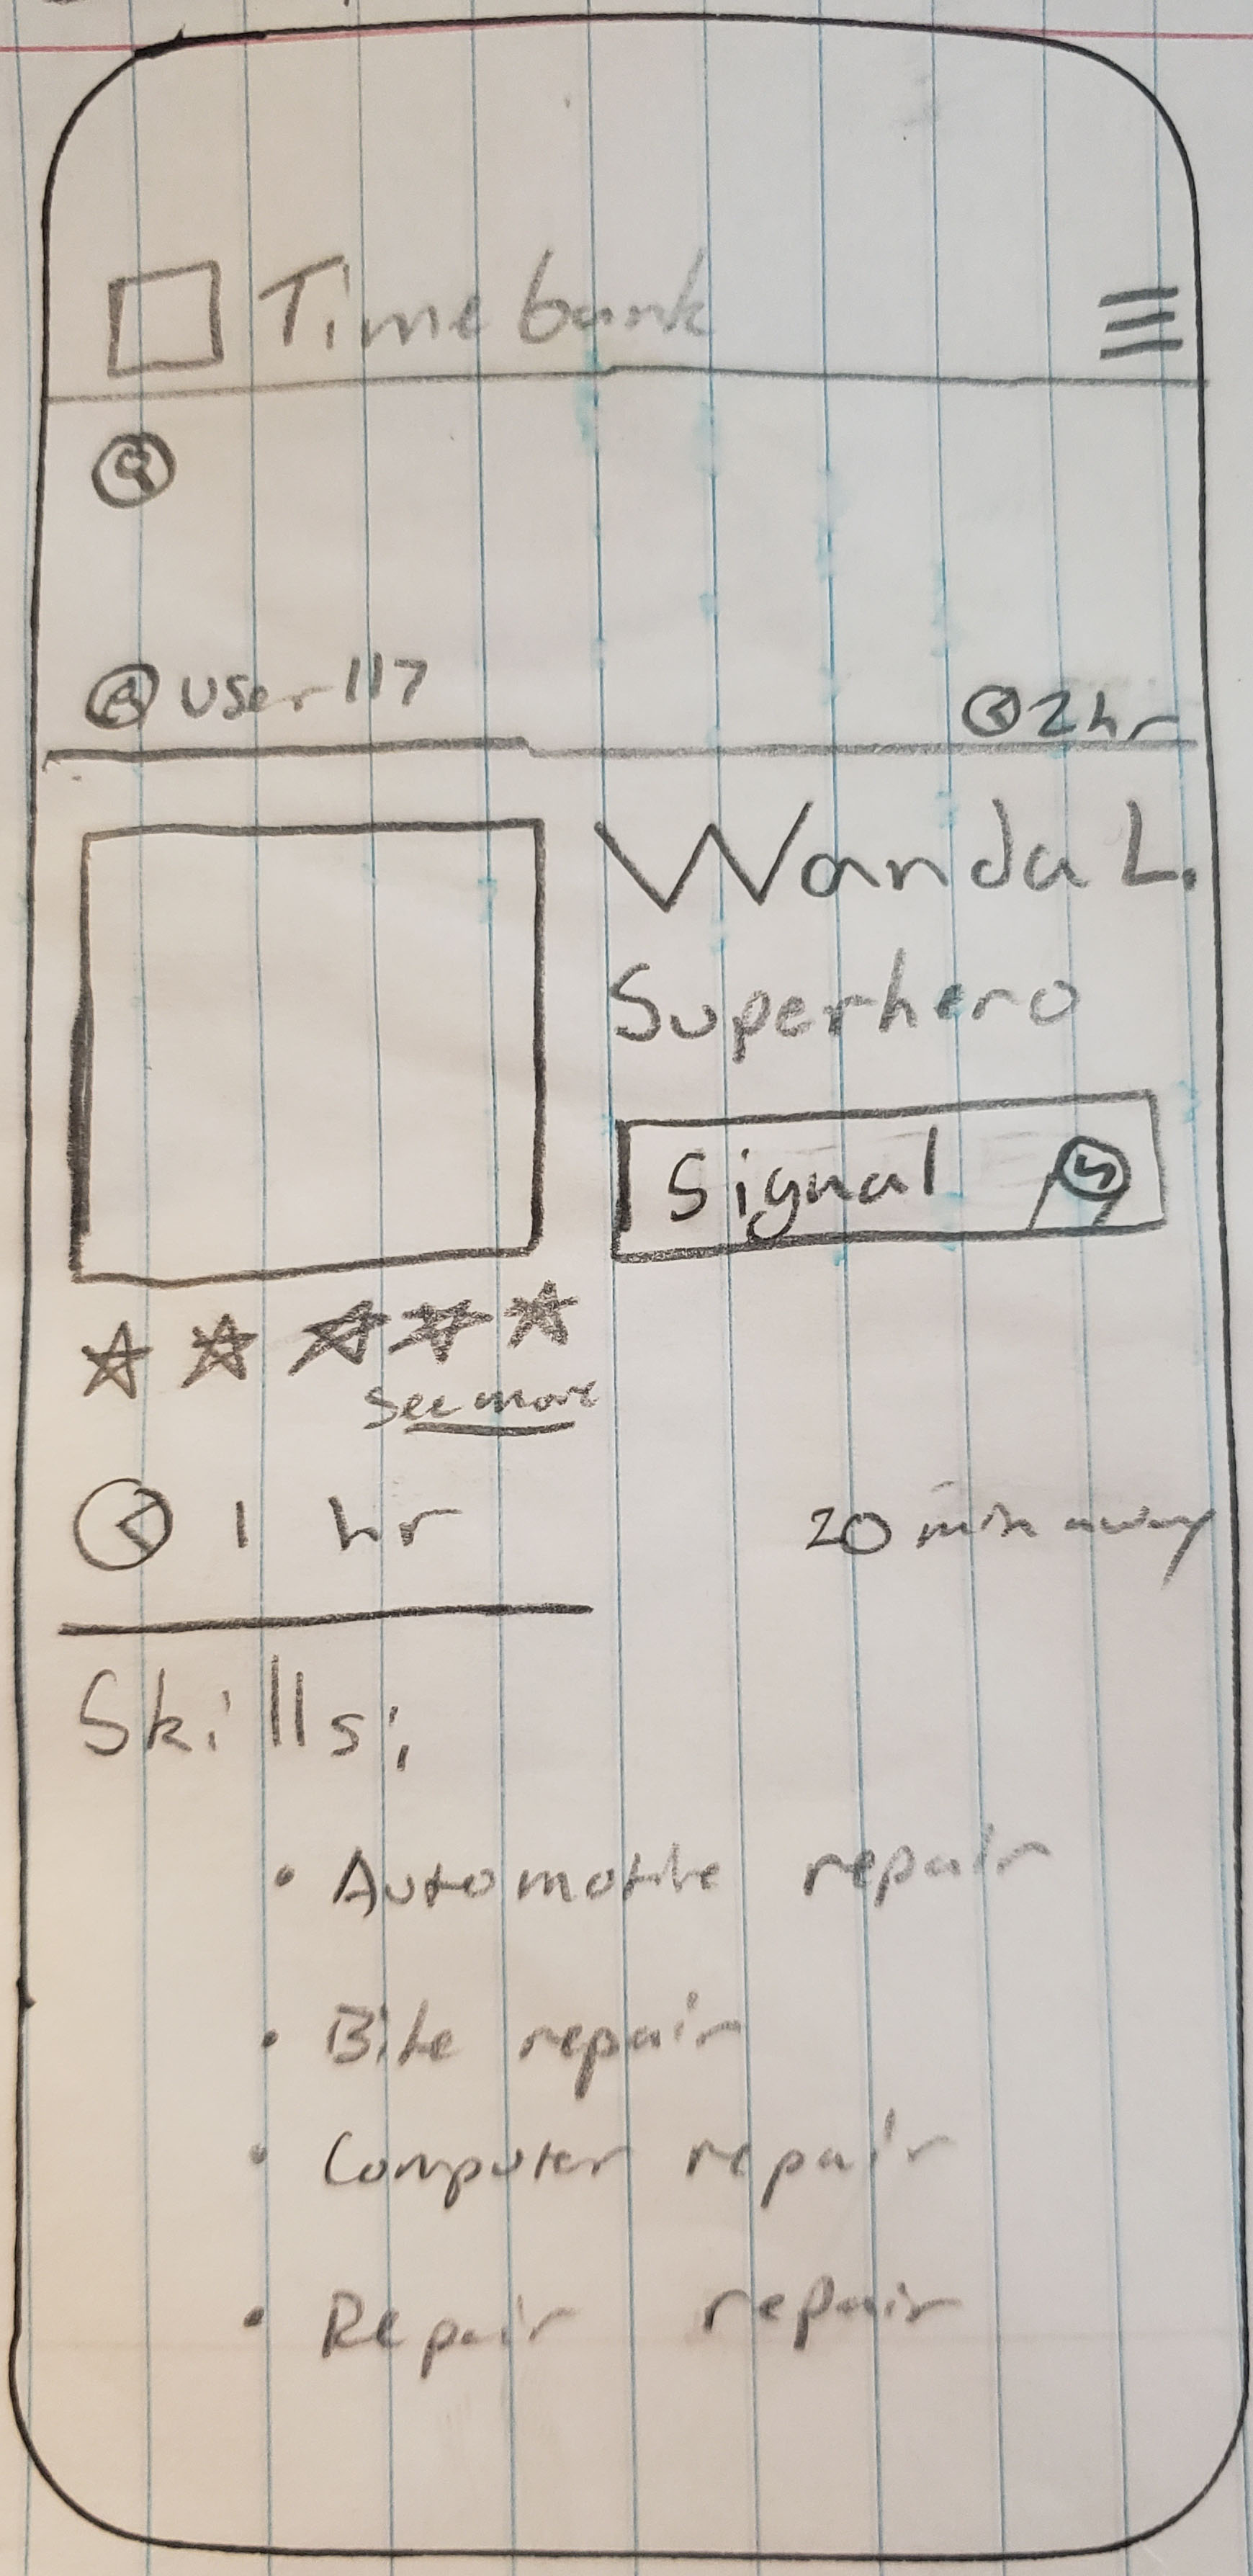 Timebank
user 117
2hr
Wanda L.
Superhero
Signal
See more
1 hr
20 min away
Skills:
• Automotive repair
• Bike repair
• Computer repair
• Repair repair